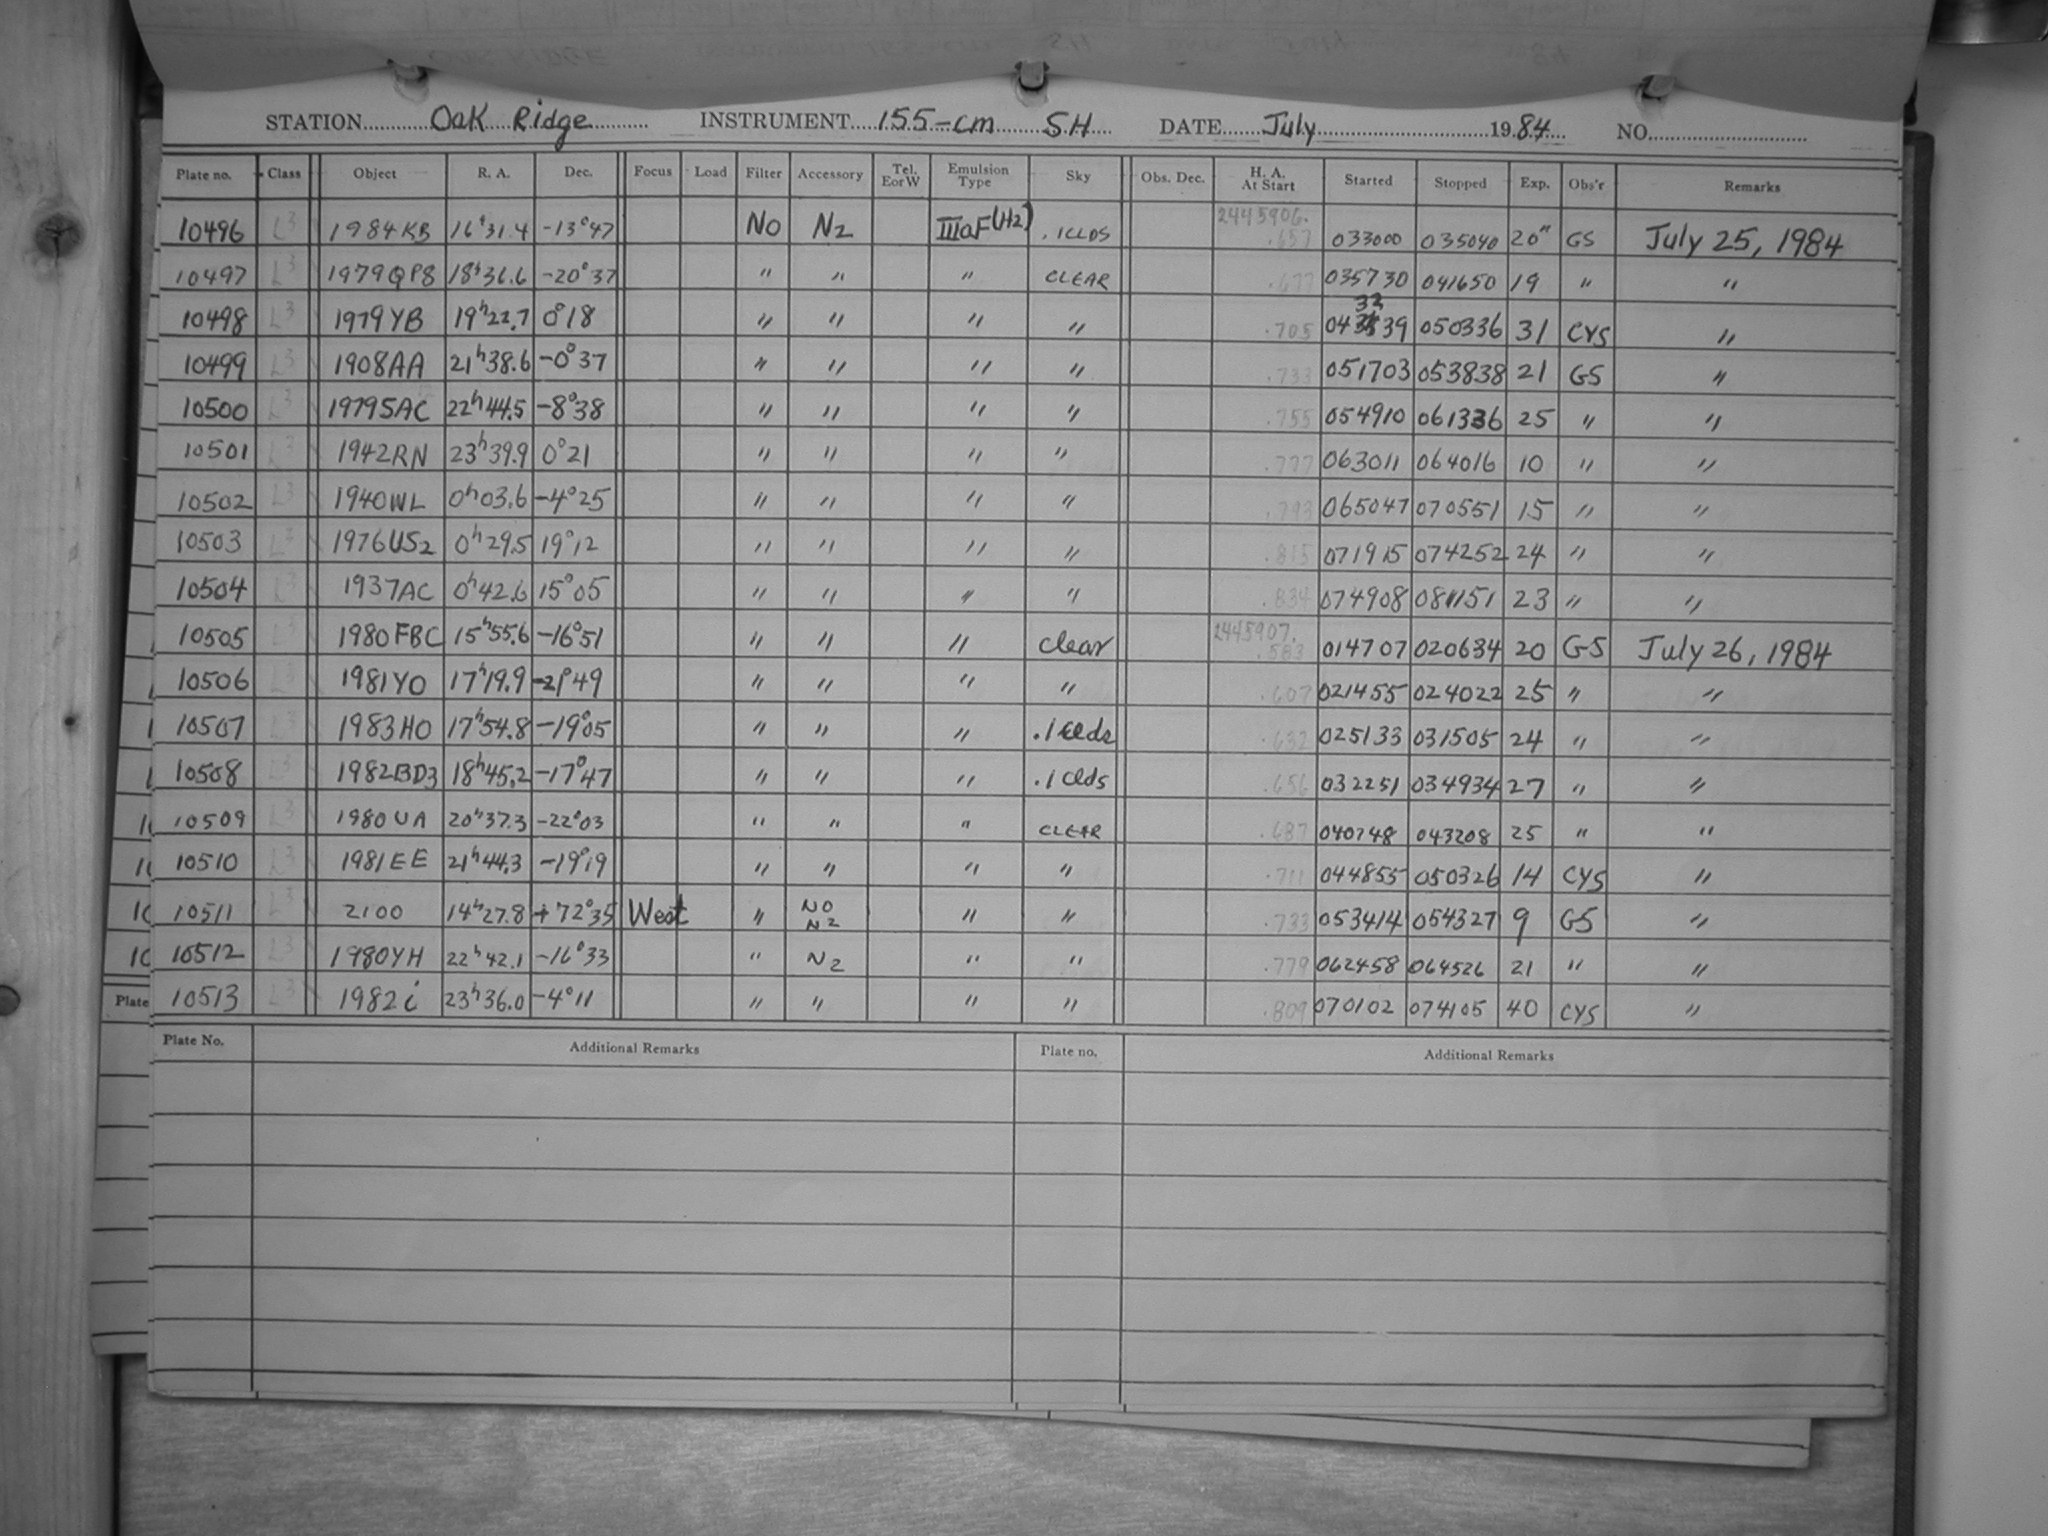 STATION Oak Ridge INSTRUMENT 155-cm SH DATE July 1984 NO.
Plate no. Class Object R. A. Dec. Focus Load Filter Accessory Tel. E or W Emulsion Type Sky Obs. Dec. H. A. At Start Started Stopped Exp. Obs'r Remarks
10496 L3 1984KB 16h31.4 -13°47 NO N2 IIIaF(H2) .1CLDS 2445906. .657 033000 035040 20m GS July 25, 1984
10497 L3 1979QP8 18h36.6 -20°37 " " " CLEAR .677 035730 041650 19 " "
10498 L3 1979YB 19h22.7 0°18 " " " " .705 043239 050336 31 CYS "
10499 L3 1908AA 21h38.6 -0°37 " " " " .733 051703 053838 21 GS "
10500 L3 1979SAC 22h44.5 -8°38 " " " " .755 054910 061336 25 " "
10501 L3 1942RN 23h39.9 0°21 " " " " .777 063011 064016 10 " "
10502 L3 1940WL 0h03.6 -4°25 " " " " .793 065047 070551 15 " "
10503 L3 1976US2 0h29.5 19°12 " " " " .815 071915 074252 24 " "
10504 L3 1937AC 0h42.6 15°05 " " " " .834 074908 081151 23 " "
10505 L3 1980FBC 15h55.6 -16°51 " " " clear 2445907. .583 014707 020634 20 GS July 26, 1984
10506 L3 1981YO 17h19.9 -21°49 " " " " .607 021455 024022 25 " "
10507 L3 1983HO 17h54.8 -19°05 " " " .1 clds .632 025133 031505 24 " "
10508 L3 1982BD3 18h45.2 -17°47 " " " .1 clds .656 032251 034934 27 " "
10509 L3 1980UA 20h37.3 -22°03 " " " CLEAR .687 040748 043208 25 " "
10510 L3 1981EE 21h44.3 -19°19 " " " " .711 044855 050326 14 CYS "
10511 L3 2100 14h27.8 +72°35 West " NO N2 " " .733 053414 054327 9 GS "
10512 L3 1980YH 22h42.1 -16°33 " N2 " " .779 062458 064526 21 " "
10513 L3 1982i 23h36.0 -4°11 " " " " .809 070102 074105 40 CYS "
Plate No. Additional Remarks Plate no. Additional Remarks